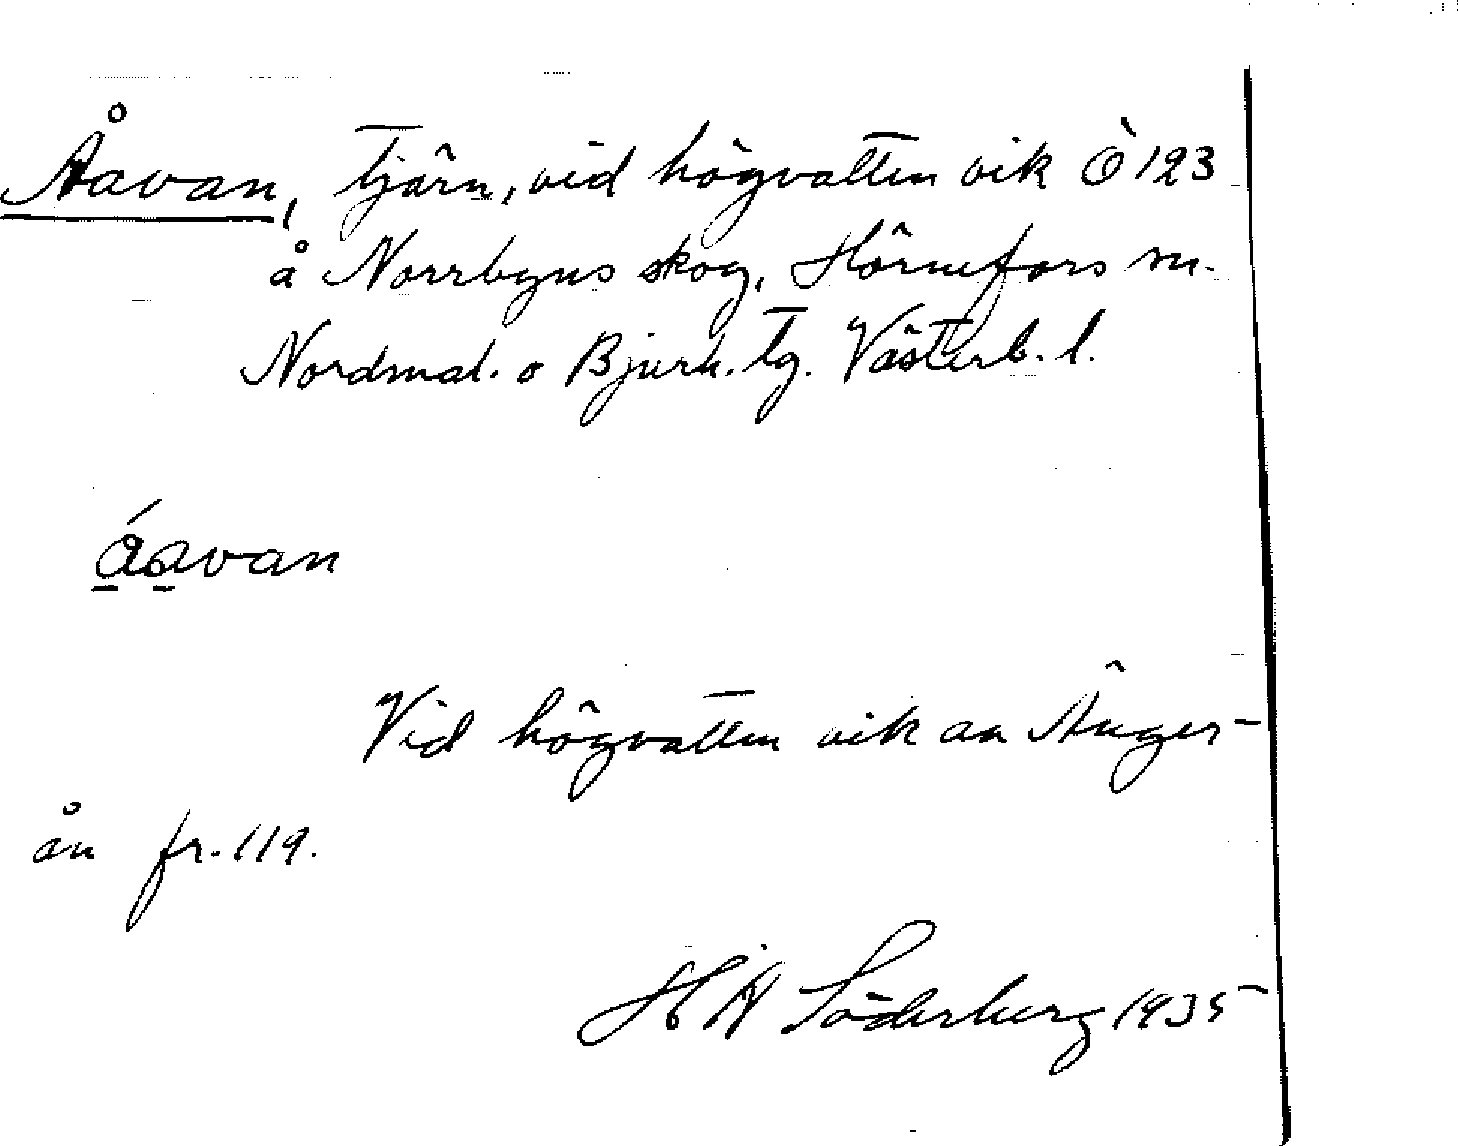 Åavan, Tjärn, vid högvatten vik Ö 123
å Norrbyns skog, Hörnefors sn.
Nordmal. o Bjurh. tg. Västerb. l.
áavan
Vid högvatten vik av Änger-
ån fr. 119.
H Å Söderberg 1935